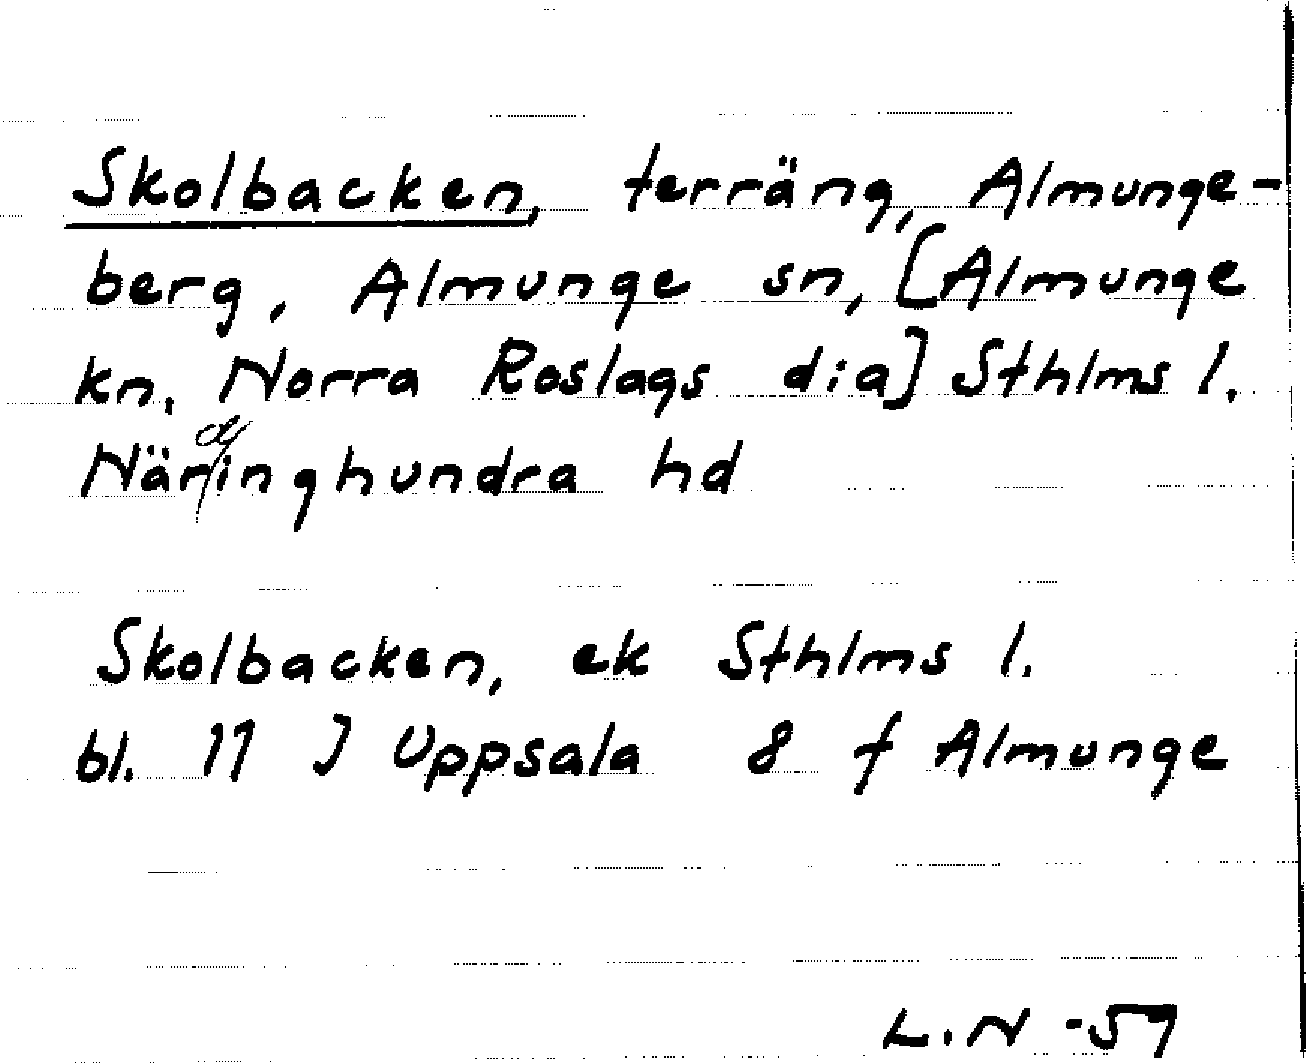 Skolbacken, terräng, Almunge-
berg, Almunge sn, [Almunge
kn, Norra Roslags dia] Sthlms l.
Näringhundra hd
Skolbacken, ek Sthlms l.
bl. 11 J Uppsala 8 f Almunge
L.N -57